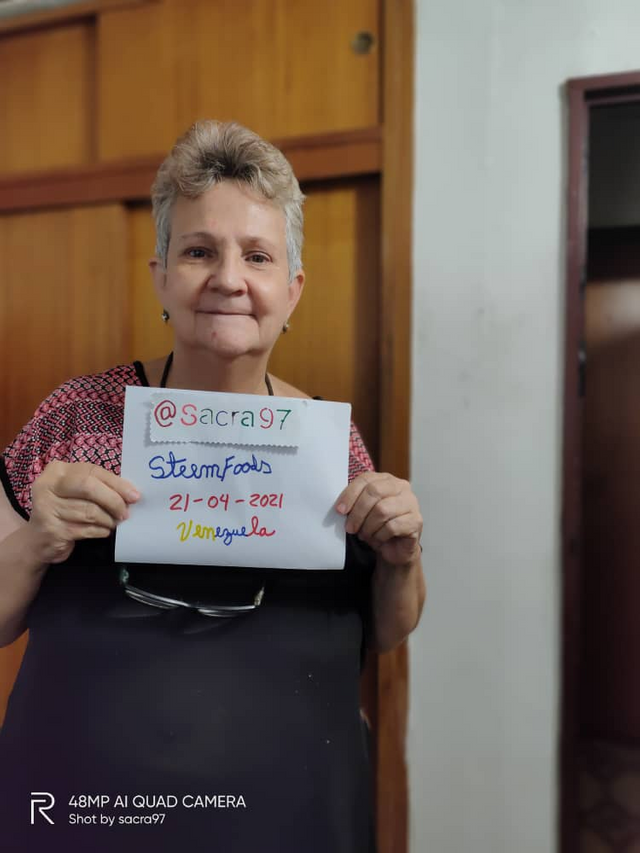 @Sacra97
SteemFoods
21-04-2021
Venezuela
48MP AI QUAD CAMERA
Shot by sacra97